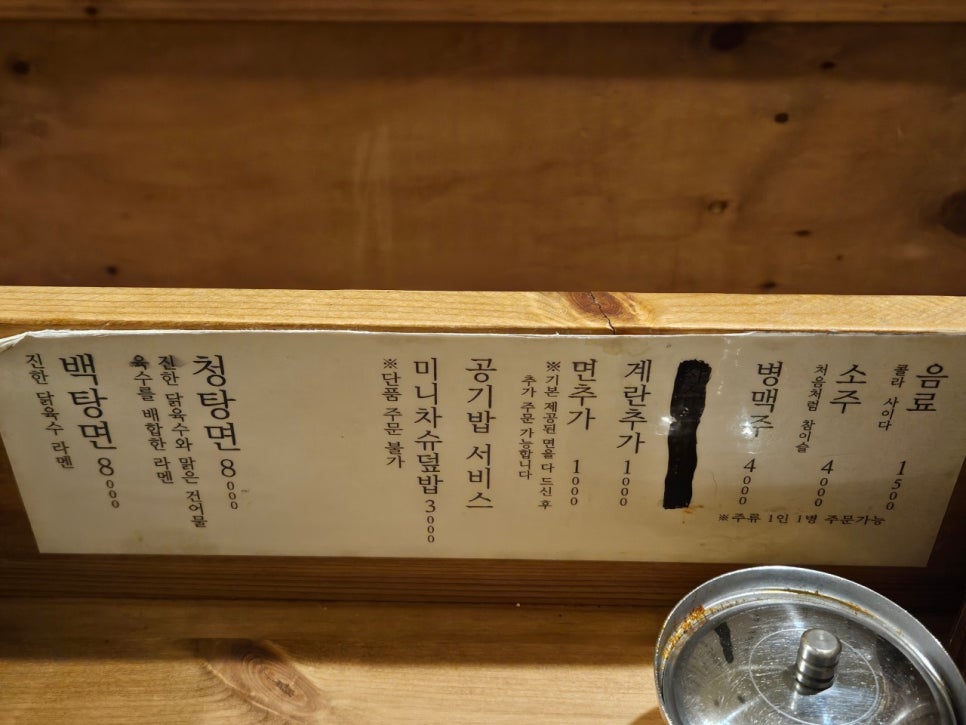 음료 1500
콜라 사이다
소주 4000
처음처럼 참이슬
병맥주 4000
※주류 1인 1병 주문가능
계란추가 1000
면추가 1000
※기본 제공된 면을 다 드신 후
추가 주문 가능합니다
공기밥 서비스
미니차슈덮밥 3000
※단품 주문 불가
청탕면 8000
진한 닭육수와 맑은 건어물
육수를 배합한 라멘
백탕면 8000
진한 닭육수 라멘